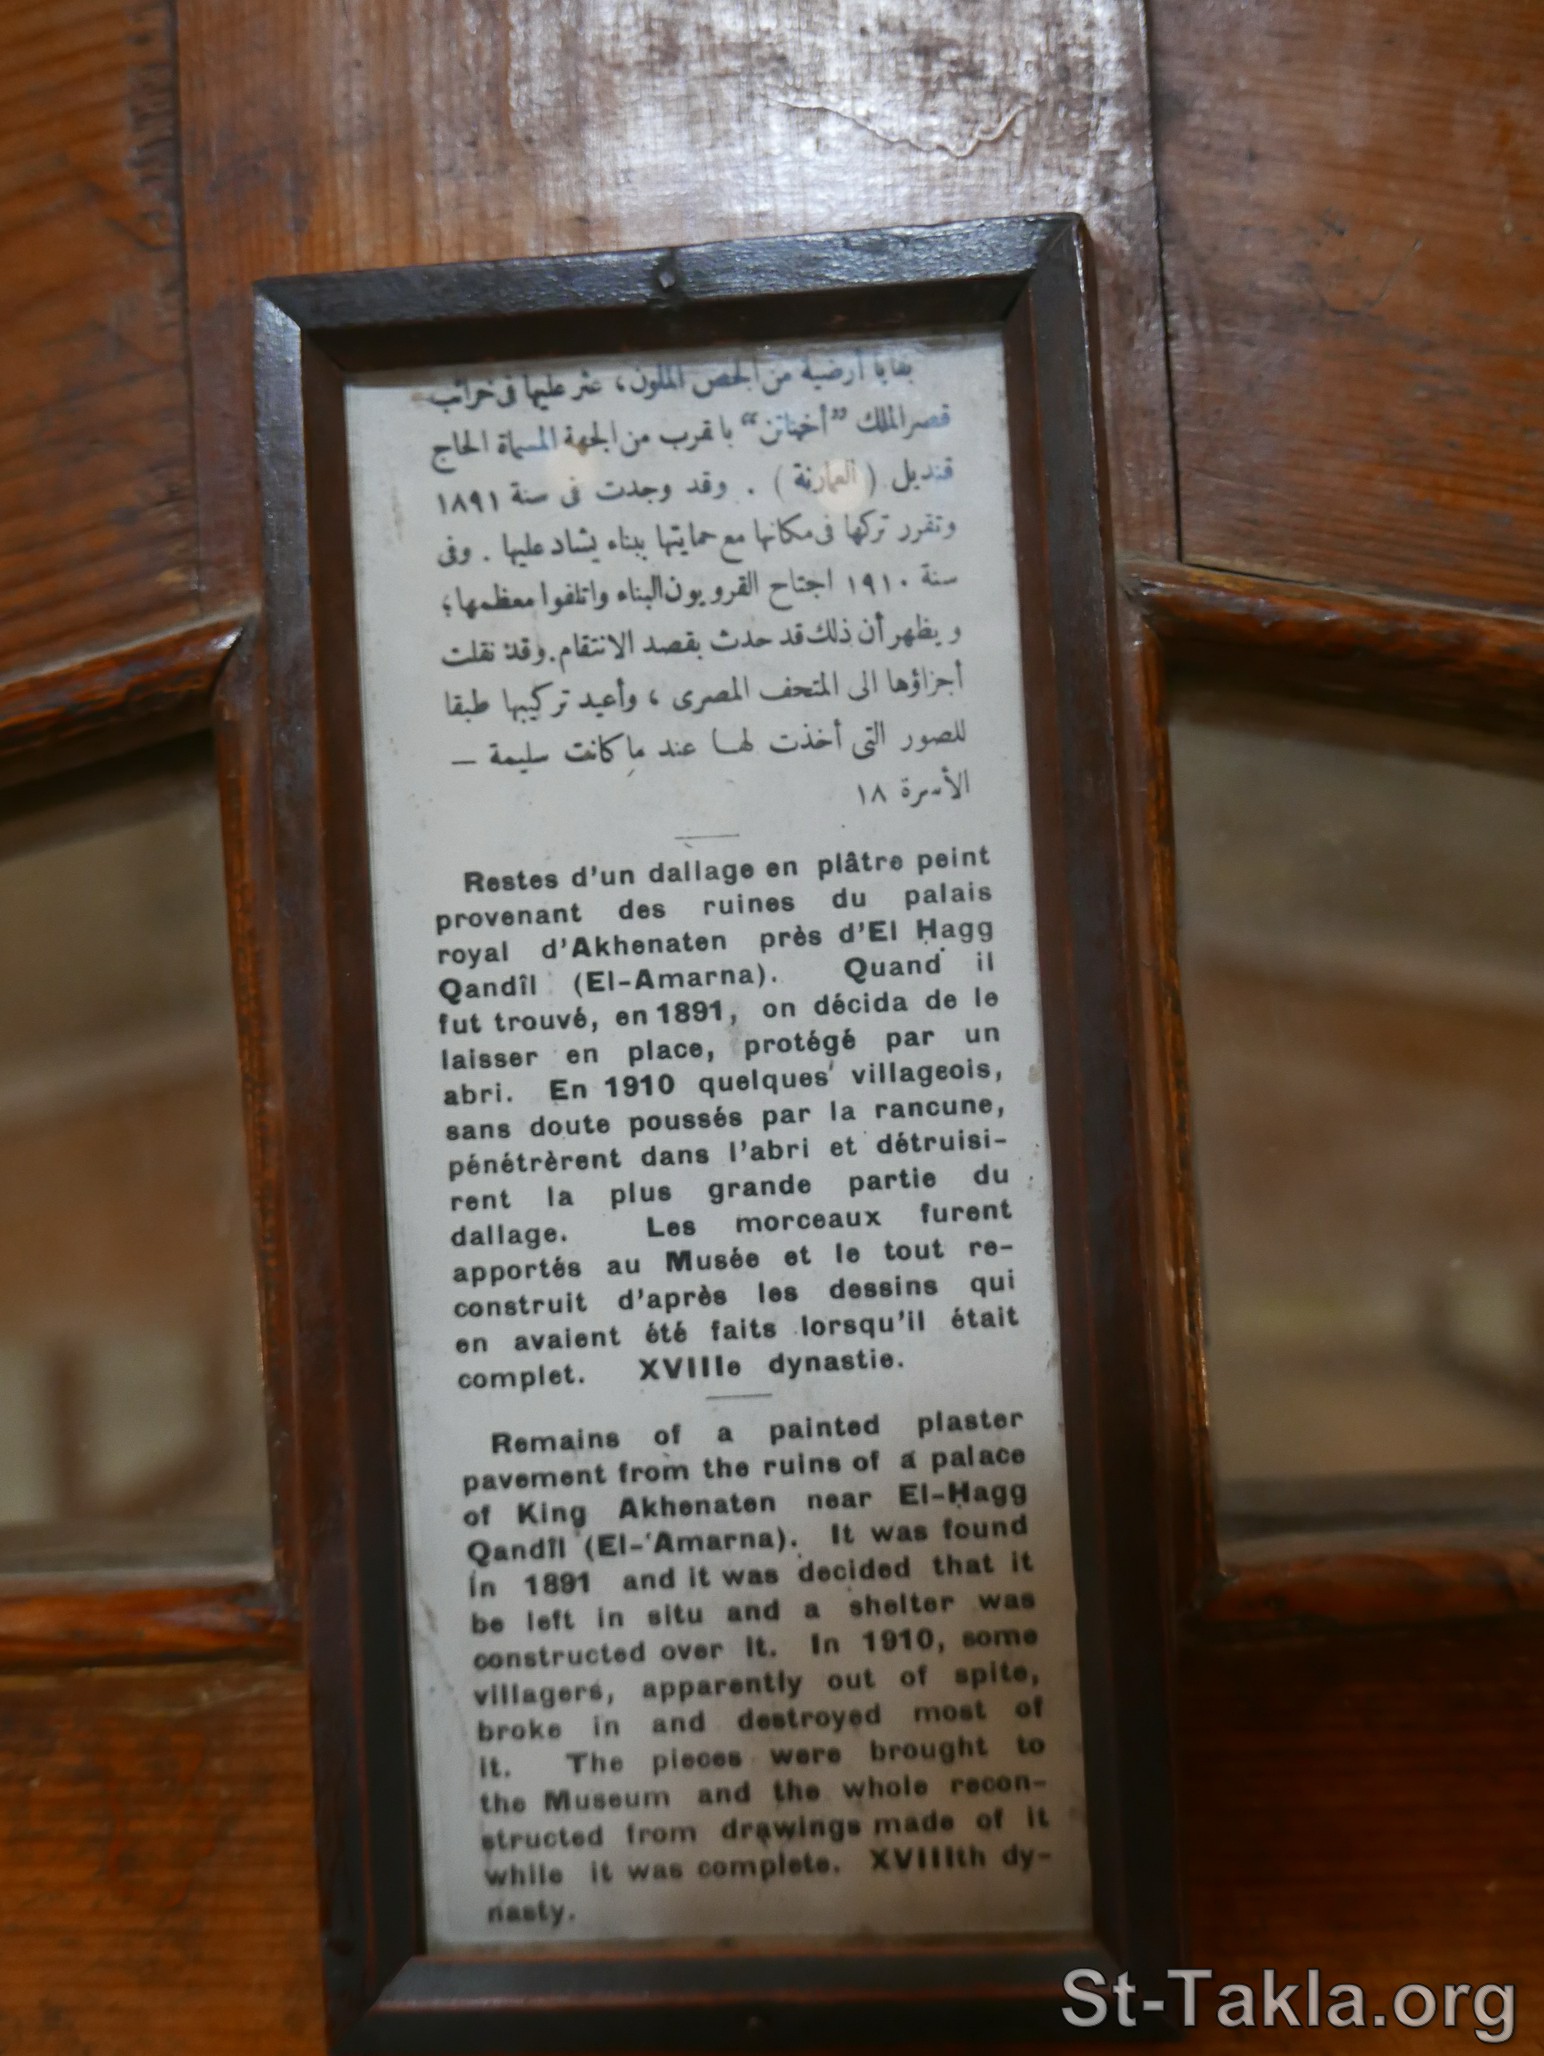 بقايا أرضية من الجص الملون، عثر عليها فى خرائب
قصر الملك ”أخناتن“ بالقرب من الجهة المسماة الحاج
قنديل ( العمارنة ) . وقد وجدت فى سنة ١٨٩١
وتقرر تركها فى مكانها مع حمايتها ببناء يشاد عليها . وفى
سنة ١٩١٠ اجتاح القرويون البناء واتلفوا معظمها؛
ويظهر أن ذلك قد حدث بقصد الانتقام. وقد نقلت
أجزاؤها الى المتحف المصرى ، وأعيد تركيبها طبقا
للصور التى أخذت لها عند ما كانت سليمة —
الأسرة ١٨
Restes d'un dallage en plâtre peint
provenant des ruines du palais
royal d'Akhenaten près d'El Ḥagg
Qandîl (El-Amarna). Quand il
fut trouvé, en 1891, on décida de le
laisser en place, protégé par un
abri. En 1910 quelques villageois,
sans doute poussés par la rancune,
pénétrèrent dans l'abri et détruisi-
rent la plus grande partie du
dallage. Les morceaux furent
apportés au Musée et le tout re-
construit d'après les dessins qui
en avaient été faits lorsqu'il était
complet. XVIIIe dynastie.
Remains of a painted plaster
pavement from the ruins of a palace
of King Akhenaten near El-Ḥagg
Qandîl (El-‘Amarna). It was found
in 1891 and it was decided that it
be left in situ and a shelter was
constructed over it. In 1910, some
villagers, apparently out of spite,
broke in and destroyed most of
it. The pieces were brought to
the Museum and the whole recon-
structed from drawings made of it
while it was complete. XVIIIth dy-
nasty.
St-Takla.org